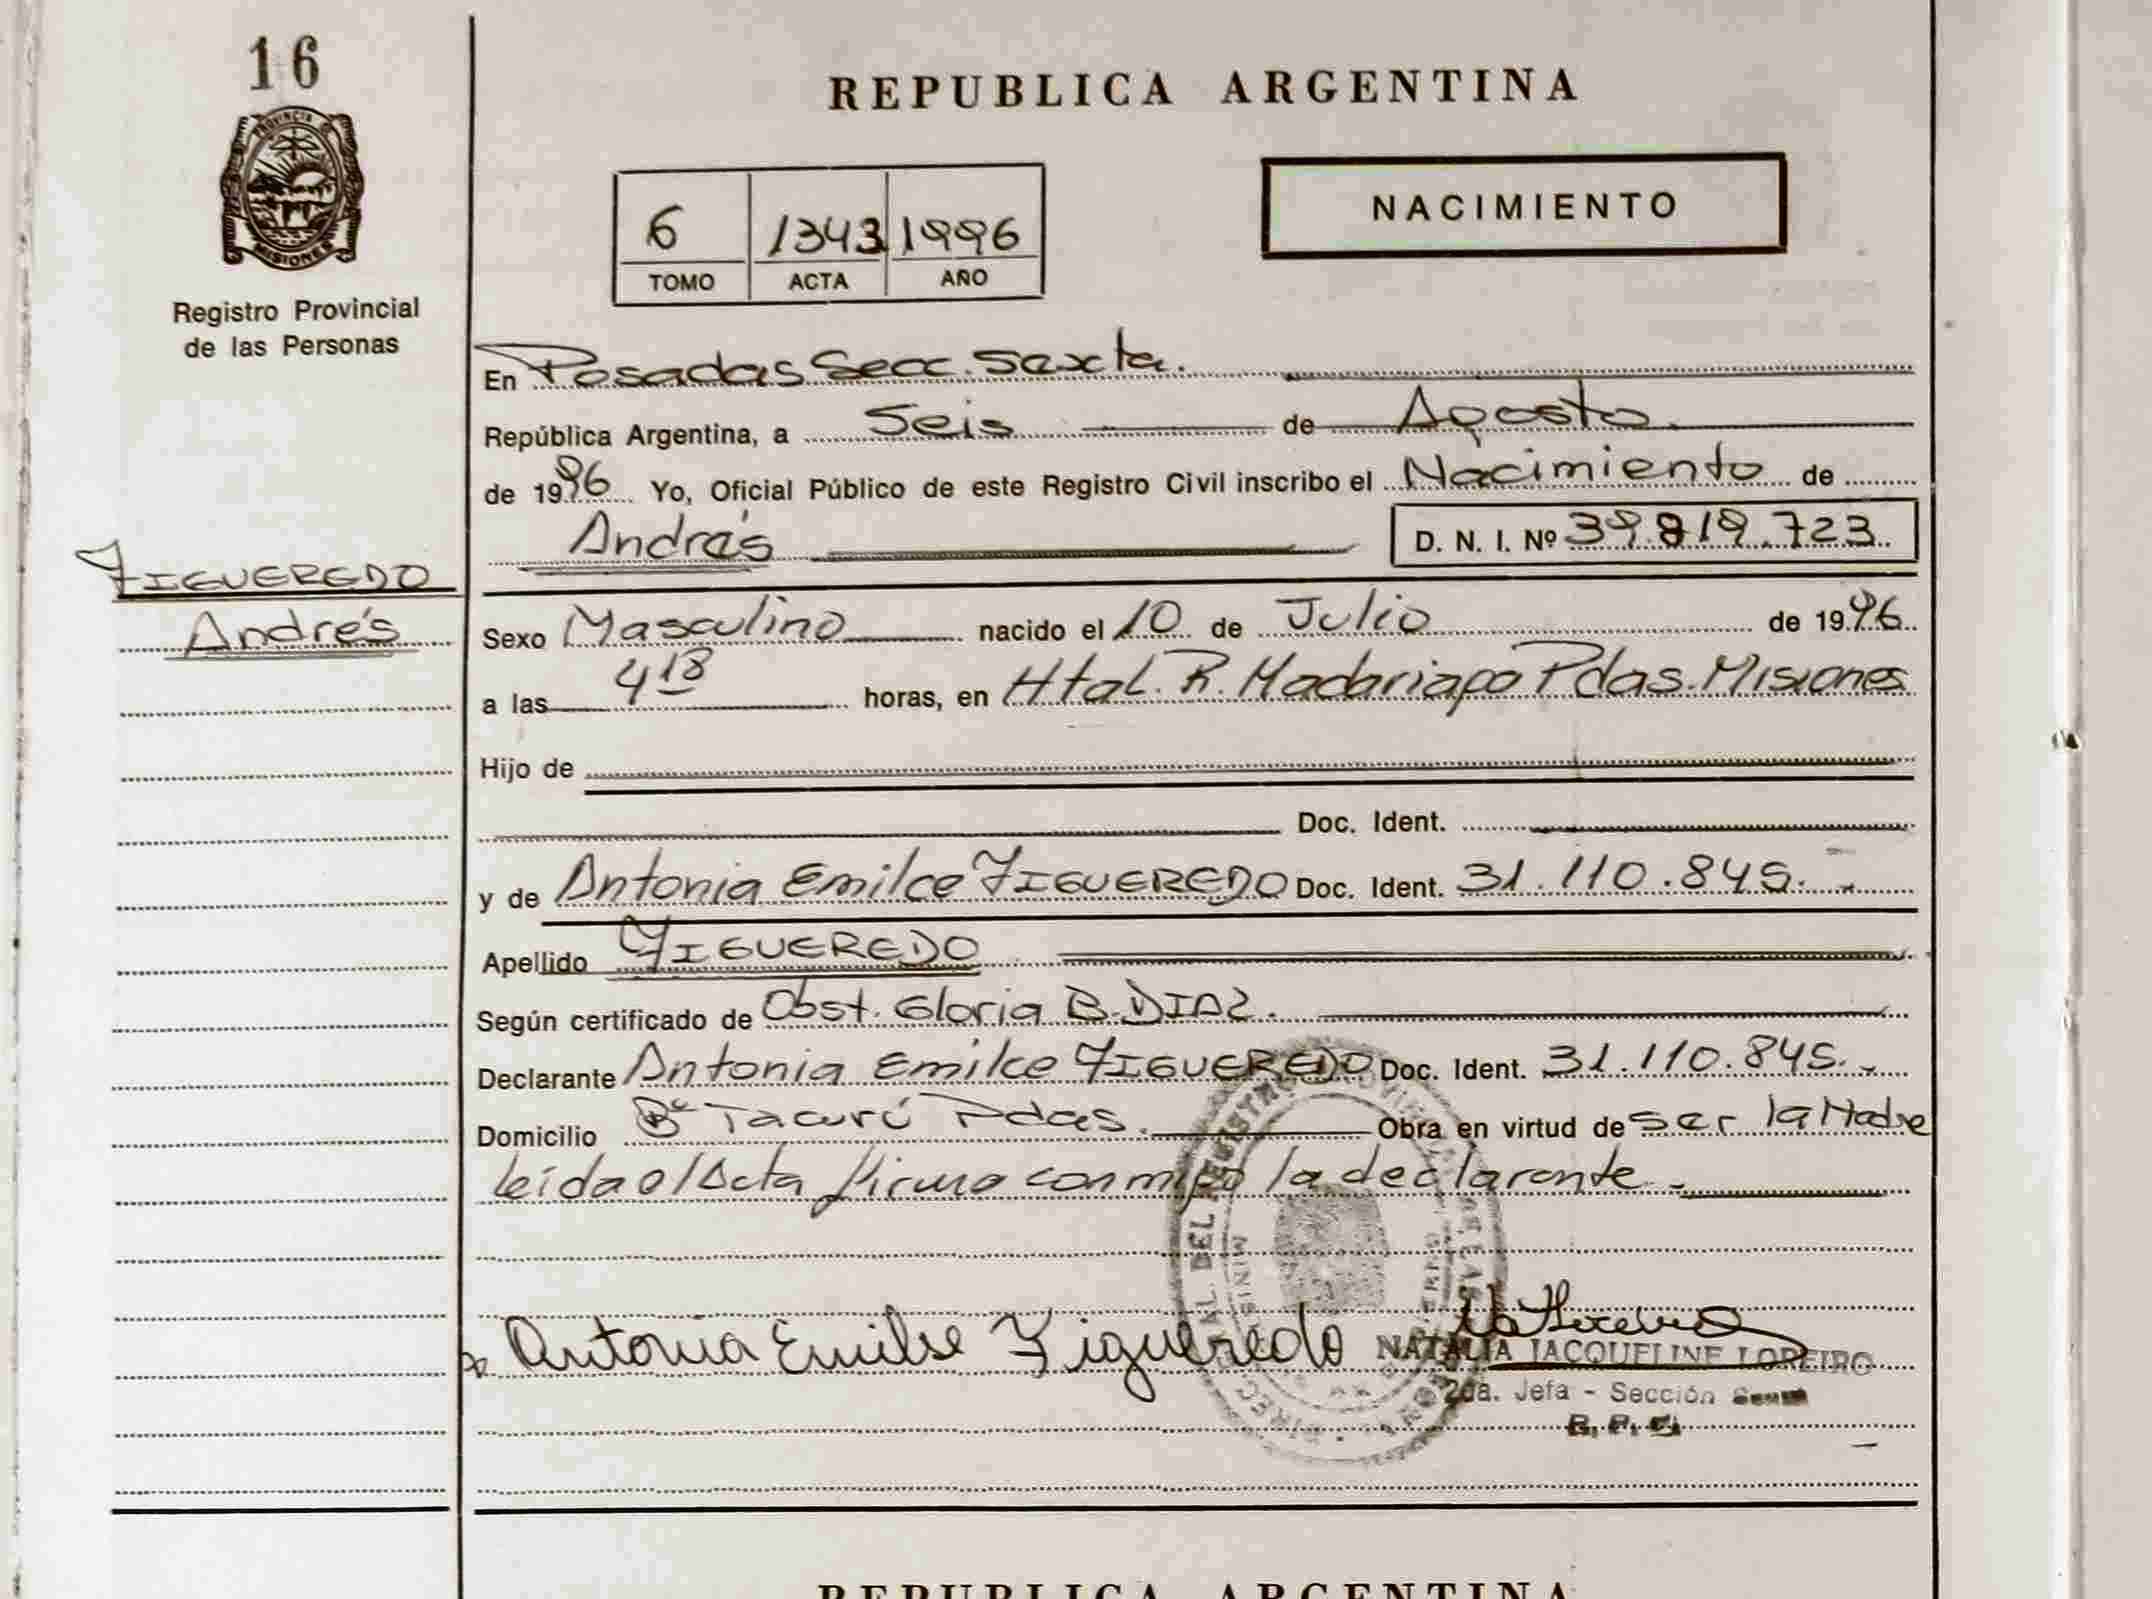 16
PROVINCIA DE
MISIONES
Registro Provincial
de las Personas
FIGUEREDO
Andrés
REPUBLICA ARGENTINA
NACIMIENTO
6 1343 1996
TOMO ACTA AÑO
En Posadas Secc. Sexta.
República Argentina, a Seis de Agosto.
de 1996 Yo, Oficial Público de este Registro Civil inscribo el Nacimiento de
Andrés D. N. I. Nº 39.819.723
Sexo Masculino nacido el 10 de Julio de 1996
a las 4 18 horas, en Htal. R. Madariaga Pdas. Misiones
Hijo de
Doc. Ident.
y de Antonia Emilce FIGUEREDO Doc. Ident. 31.110.845.-
Apellido FIGUEREDO
Según certificado de Obst. Gloria B. DIAZ.
Declarante Antonia Emilce FIGUEREDO Doc. Ident. 31.110.845.-
Domicilio Bº Tacurú Pdas. Obra en virtud de ser la Madre
leída el Acta firma conmigo la declarante.-
Antonia Emilse Figueredo
NATALIA JACQUELINE LOREIRO
2da. Jefa - Sección
R. P. P.
REPUBLICA ARGENTINA